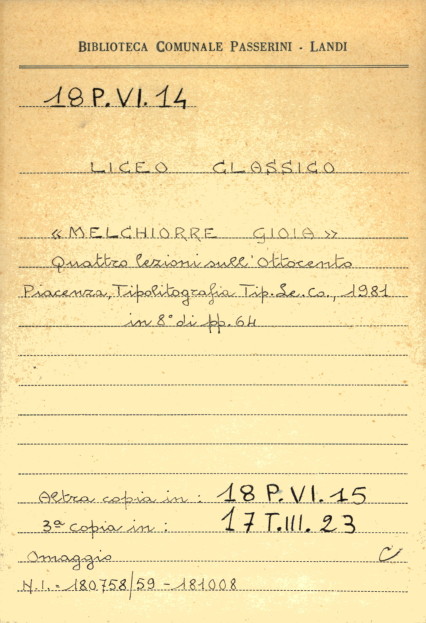 BIBLIOTECA COMUNALE PASSERINI - LANDI
18 P. VI. 14
LICEO CLASSICO
« MELCHIORRE GIOIA »
Quattro lezioni sull'Ottocento
Piacenza, Tipolitografia Tip. Le. Co., 1981
in 8° di pp. 64
Altra copia in : 18 P. VI. 15
3ª copia in : 17 T. III. 23
Omaggio C
N. I. = 180758/59 - 181008